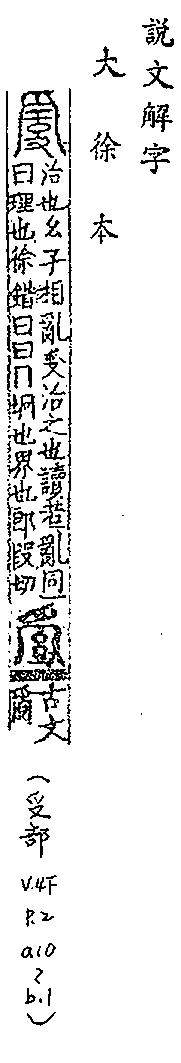 說文解字
大徐本
𤔔 治也幺子相亂𠬪治之也讀若亂同一
曰理也徐鍇曰曰冂坰也界也郎段切 𤔔 古文
𤔔
(𠬪部
V.4下
P.2
a.10
?
b.1)